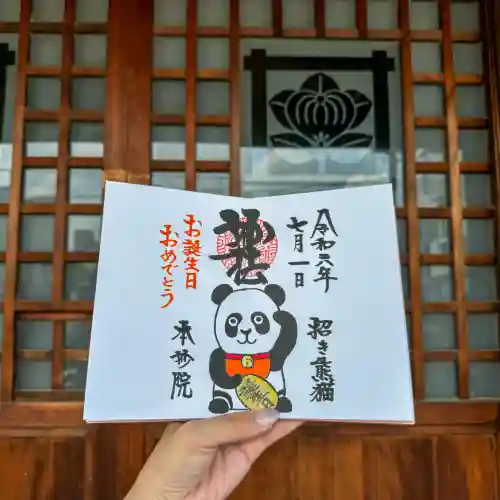 令和六年
七月一日
招き熊猫
お誕生日
おめでとう
本妙院
6